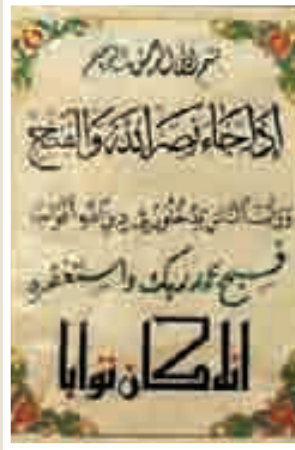 بسم الله الرحمن الرحيم
إذا جاء نصر الله والفتح
ورأيت الناس يدخلون في دين الله أفواجا
فسبح بحمد ربك واستغفره
انه كان توابا